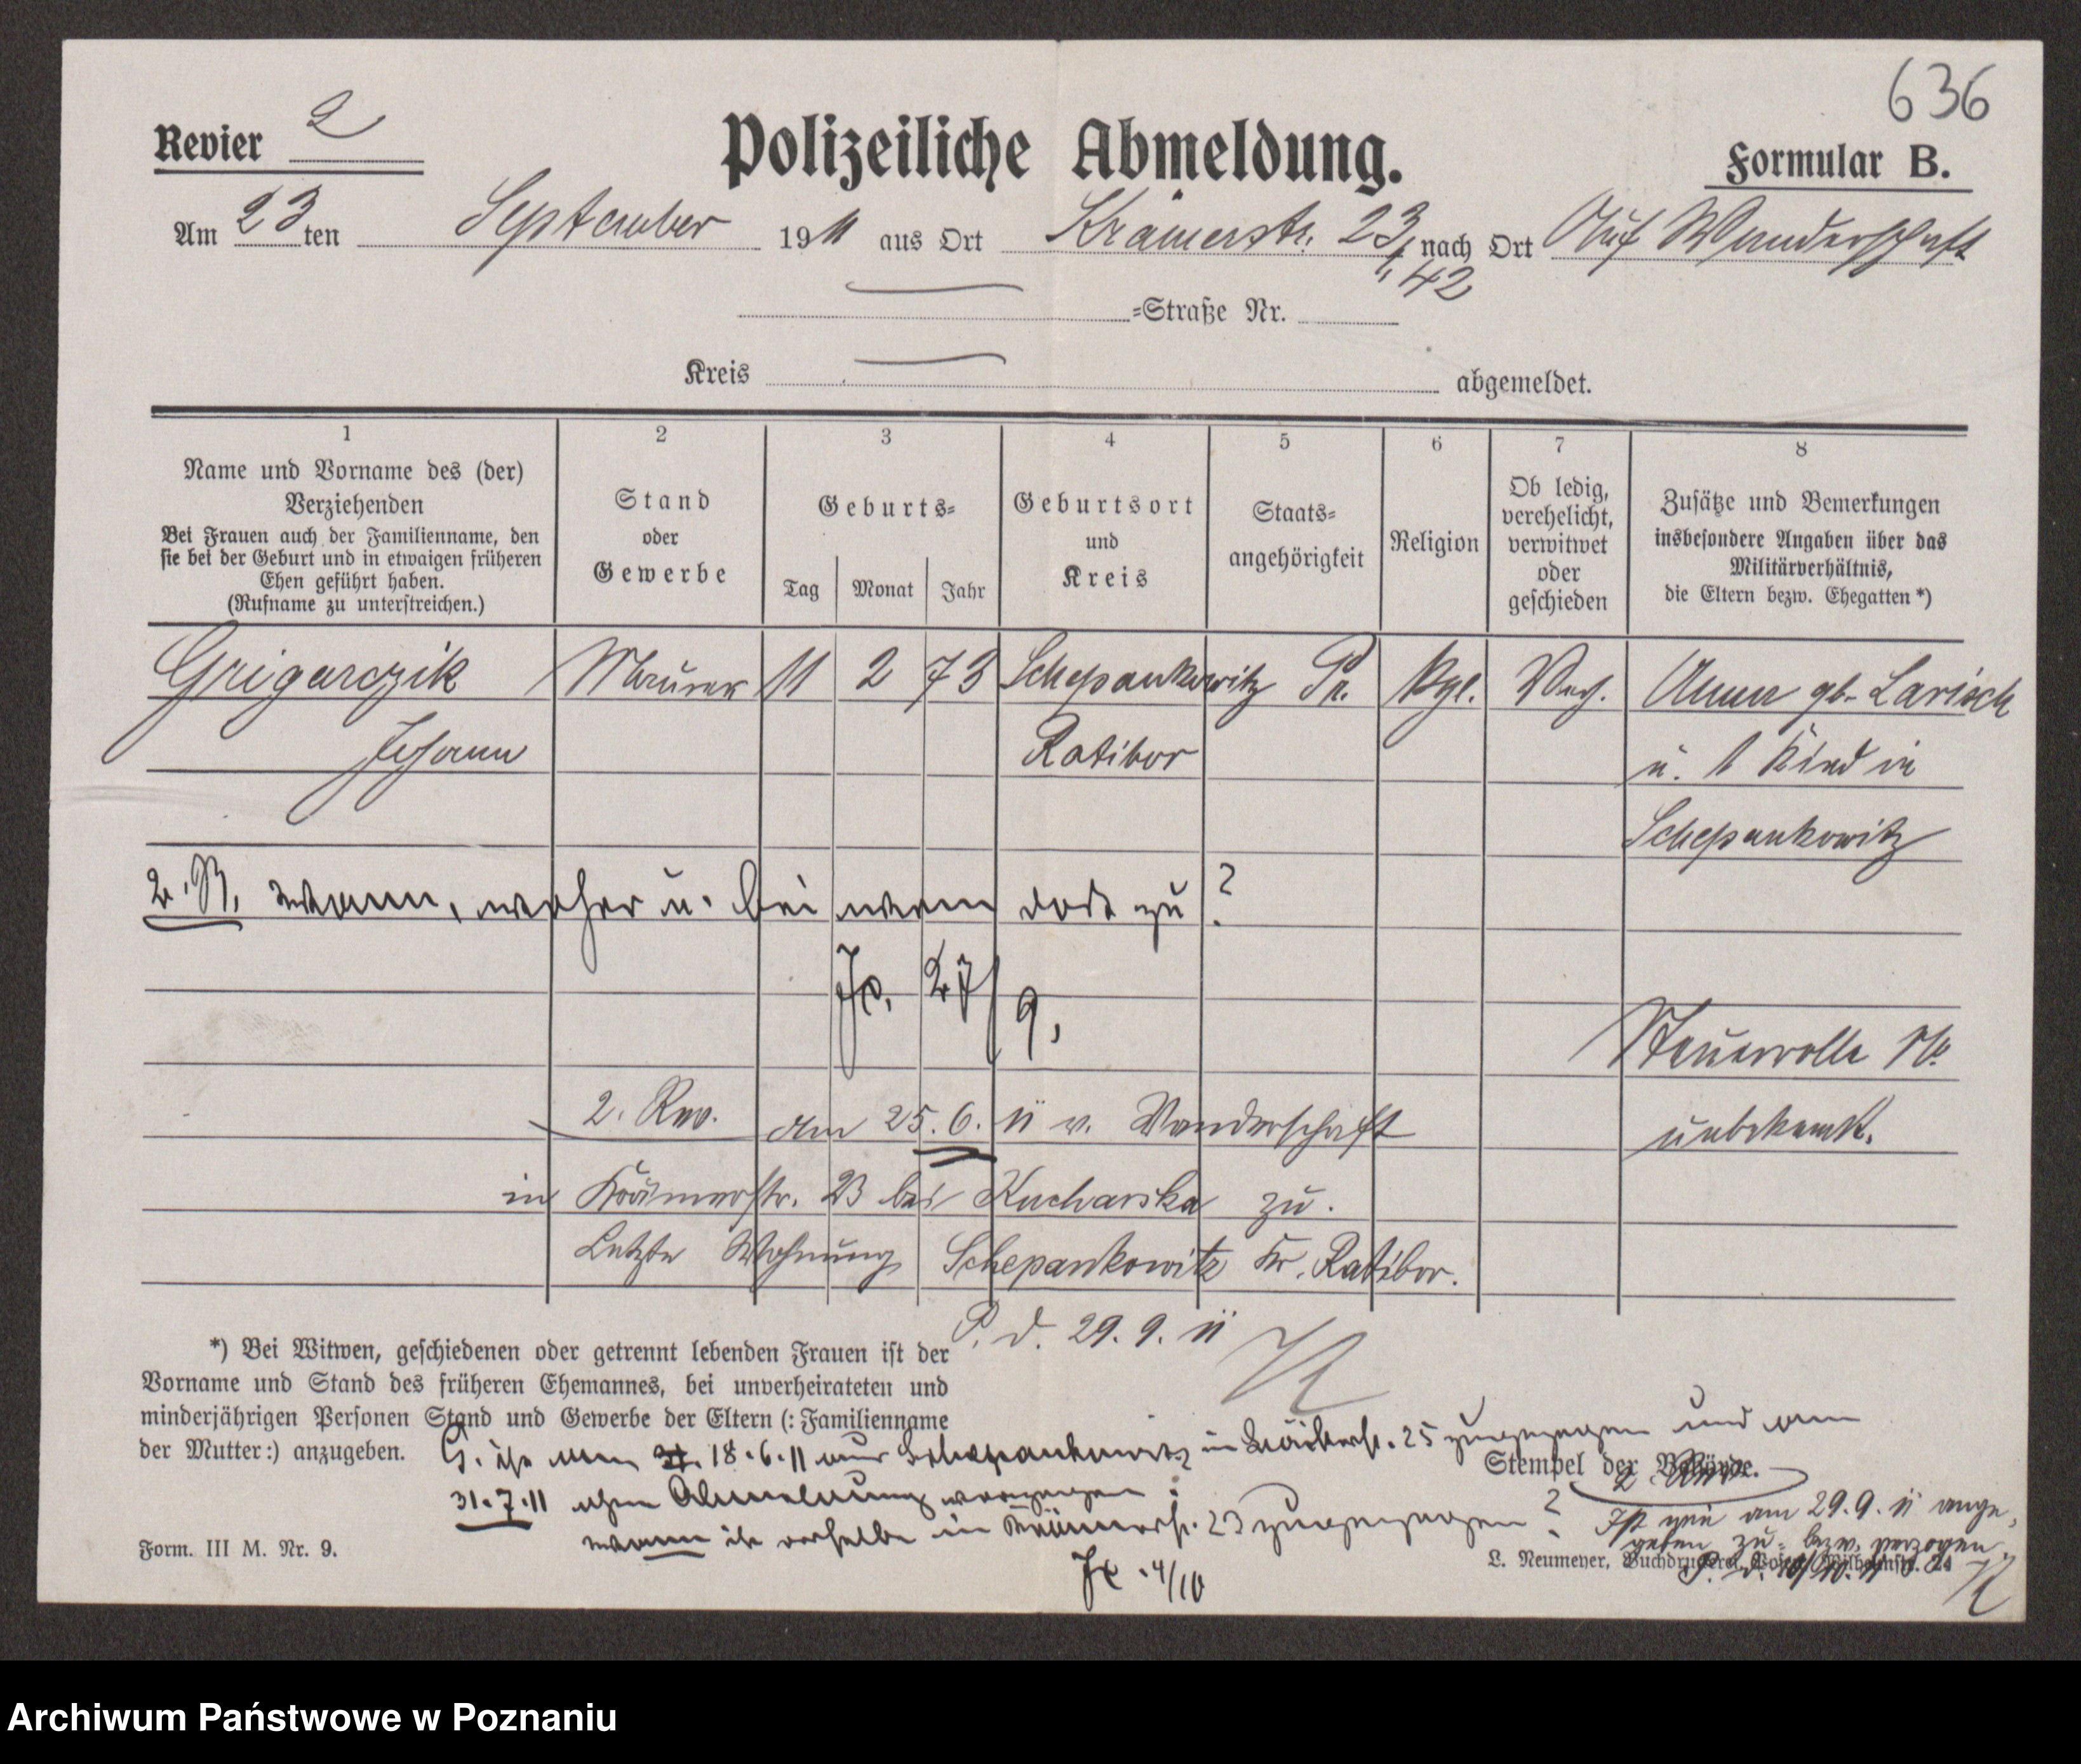 636
Revier 2
Polizeiliche Abmeldung.
Formular B.
Am 23 ten September 1911 aus Ort Krämerstr. 23 nach Ort Auf Wanderschaft
42
=Straße Nr.
Kreis abgemeldet.
1 2 3 4 5 6 7 8
Name und Vorname des (der)
Verziehenden
Bei Frauen auch der Familienname, den
sie bei der Geburt und in etwaigen früheren
Ehen geführt haben.
(Rufname zu unterstreichen.)
Stand
oder
Gewerbe
Geburts=
Tag Monat Jahr
Geburtsort
und
Kreis
Staats=
angehörigkeit
Religion
Ob ledig,
verehelicht,
verwitwet
oder
geschieden
Zusätze und Bemerkungen
insbesondere Angaben über das
Militärverhältnis,
die Eltern bezw. Ehegatten *)
Grigarczik Maurer 11 2 73 Schepankowitz Pr. Kgl. Verh. Anna gb. Larisch
Johann Ratibor u. 1 Kind in
Schepankowitz
2. R. wann, woher u. bei wem dort zu?
27/9.
Steuerrolle No
unbekannt.
2. Rev. am 25.6.11 v. Wanderschaft
in Krämerstr. 23 bei Kucharska zu.
Letzte Wohnung Schepankowitz Kr. Ratibor.
P. d. 29.9.11
*) Bei Witwen, geschiedenen oder getrennt lebenden Frauen ist der
Vorname und Stand des früheren Ehemannes, bei unverheirateten und
minderjährigen Personen Stand und Gewerbe der Eltern (: Familienname
der Mutter:) anzugeben.
G. ist am 18.6.11 aus Schepankowitz in 25 zugezogen und am
31.7.11 ohne Abmeldung verzogen;
wann ist derselbe in Krämerstr. 23 zugezogen?
4/10
Stempel der Behörde.
2 Rev.
Ist wie am 29.9.11 ange=
geben zu= bezw. verzogen.
P. d. 10/10.11
Form. III M. Nr. 9.
L. Neumeyer, Buchdruckerei, Posen, Wilhelmstr. 24
Archiwum Państwowe w Poznaniu